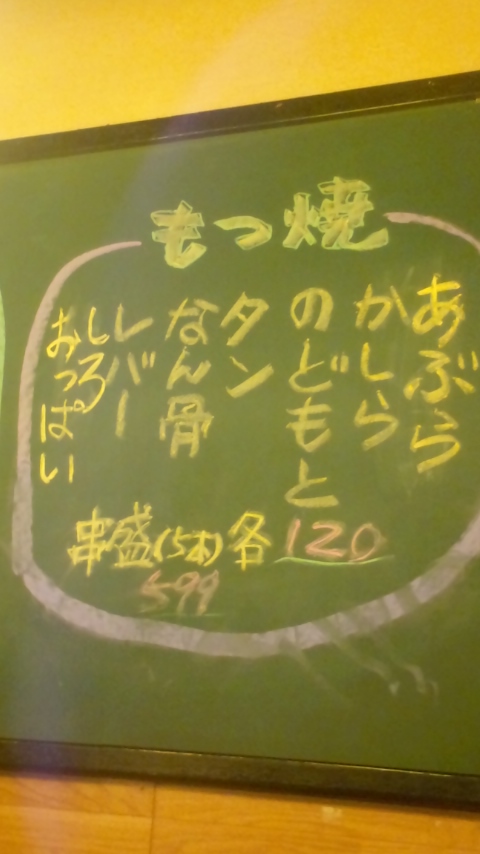 もつ焼
あぶら
かしら
のどもと
タン
なん骨
レバー
しろ
おっぱい
各120
串盛(5本)
599